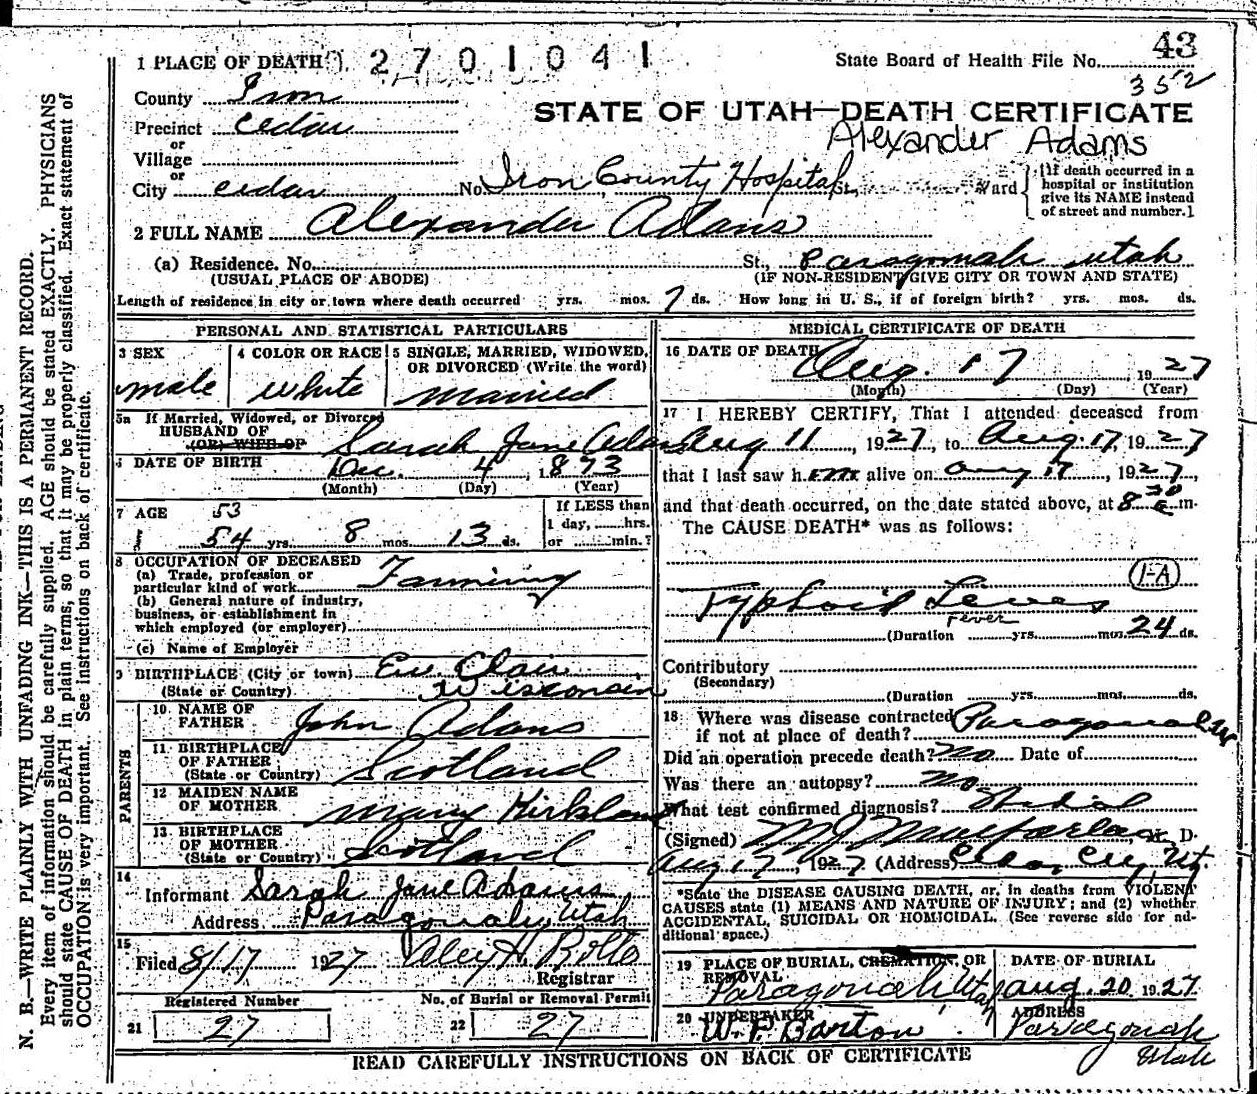 43
1 PLACE OF DEATH 2701041 State Board of Health File No.
352
County Iron
STATE OF UTAH—DEATH CERTIFICATE
Precinct cedar
Alexander Adams
or
Village
or
City cedar No. Iron County Hospital St., Ward [If death occurred in a hospital or institution give its NAME instead of street and number.]
2 FULL NAME Alexander Adams
(a) Residence. No. St., Paragonah Utah
(USUAL PLACE OF ABODE) (IF NON-RESIDENT GIVE CITY OR TOWN AND STATE)
Length of residence in city or town where death occurred yrs. mos. 7 ds. How long in U. S., if of foreign birth? yrs. mos. ds.
PERSONAL AND STATISTICAL PARTICULARS
3 SEX
male
4 COLOR OR RACE
white
5 SINGLE, MARRIED, WIDOWED,
OR DIVORCED (Write the word)
married
5a If Married, Widowed, or Divorced
HUSBAND OF
(OR) WIFE OF
Sarah Jane Adams
DATE OF BIRTH
Dec. 4, 1873
(Month) (Day) (Year)
7 AGE 53
54 yrs. 8 mos. 13 ds.
If LESS than
1 day, hrs.
or min.?
8 OCCUPATION OF DECEASED
(a) Trade, profession or
particular kind of work Farming
(b) General nature of industry,
business, or establishment in
which employed (or employer)
(c) Name of Employer
9 BIRTHPLACE (City or town) Eau Clair
(State or Country) Wisconsin
PARENTS
10. NAME OF
FATHER John Adams
11. BIRTHPLACE
OF FATHER
(State or Country) Scotland
12 MAIDEN NAME
OF MOTHER Mary Kirkland
13. BIRTHPLACE
OF MOTHER
(State or Country) Scotland
14
Informant Sarah Jane Adams
Address Paragonah, Utah
15
Filed 8/17 1927 Alex H. Rollo
Registrar
Registered Number No. of Burial or Removal Permit
21 27 22 27
MEDICAL CERTIFICATE OF DEATH
16 DATE OF DEATH
Aug. 17 1927
(Month) (Day) (Year)
17 I HEREBY CERTIFY, That I attended deceased from
Aug 11, 1927, to Aug. 17, 1927
that I last saw him alive on aug 17, 1927,
and that death occurred, on the date stated above, at 8 30 m.
The CAUSE DEATH* was as follows:
1-A
Typhoid Fever
Fever
(Duration yrs. mos. 24 ds.
Contributory
(Secondary)
(Duration yrs. mos. ds.
18 Where was disease contracted Paragonah Ut
if not at place of death?
Did an operation precede death? no Date of
Was there an autopsy? no
What test confirmed diagnosis? Widal
(Signed) M J Macfarlane, M. D.
Aug 17, 1927 (Address) Cedar City Ut.
*State the DISEASE CAUSING DEATH, or, in deaths from VIOLENT
CAUSES state (1) MEANS AND NATURE OF INJURY; and (2) whether
ACCIDENTAL, SUICIDAL OR HOMICIDAL. (See reverse side for ad-
ditional space.)
19 PLACE OF BURIAL, CREMATION, OR
REMOVAL
Paragonah Utah
DATE OF BURIAL
aug. 20 1927
20 UNDERTAKER
W. P. Barton
ADDRESS
Paragonah
Utah
READ CAREFULLY INSTRUCTIONS ON BACK OF CERTIFICATE
N. B.—WRITE PLAINLY WITH UNFADING INK—THIS IS A PERMANENT RECORD.
Every item of information should be carefully supplied. AGE should be stated EXACTLY. PHYSICIANS
should state CAUSE OF DEATH in plain terms, so that it may be properly classified. Exact statement of
OCCUPATION is very important. See instructions on back of certificate.